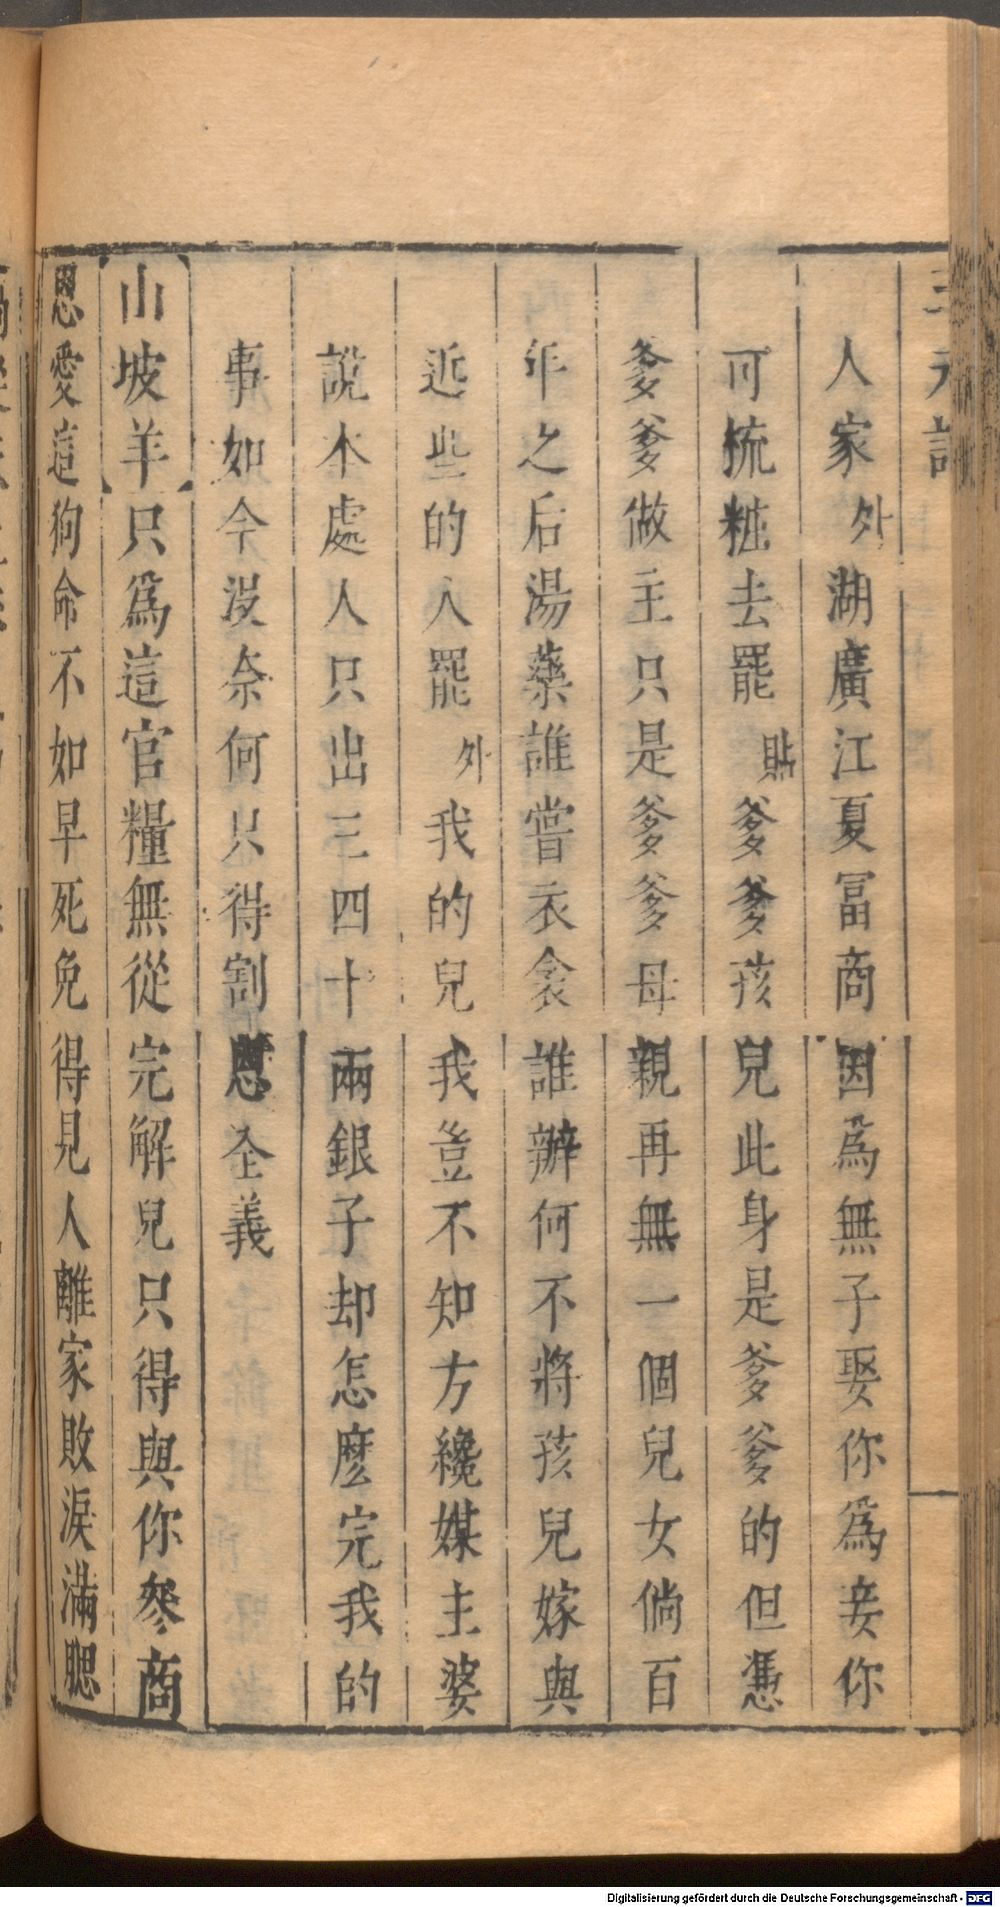 三元記
人家外湖廣江夏冨商因爲無子娶你爲妾你
可梳粧去罷貼爹爹孩兒此身是爹爹的但憑
爹爹做主只是爹爹母親再無一個兒女倘百
年之后湯藥誰嘗衣衾誰辦何不將孩兒嫁與
近些的人罷外我的兒我豈不知方纔媒主婆
說本處人只出三四十兩銀子却怎麽完我的
事如今没奈何只得割恩全義
山坡羊只爲這官糧無從完解兒只得與你叅商
恩愛這狗命不如早死免得見人離家敗淚滿腮
Digitalisierung gefördert durch die Deutsche Forschungsgemeinschaft - DFG